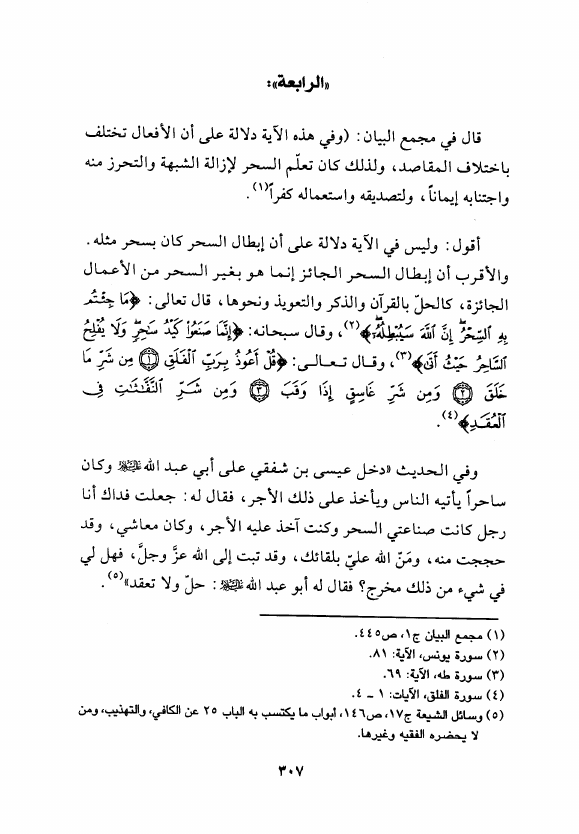 «الرابعة»:
قال في مجمع البيان: (وفي هذه الآية دلالة على أن الأفعال تختلف
باختلاف المقاصد، ولذلك كان تعلّم السحر لإزالة الشبهة والتحرز منه
واجتنابه إيماناً، ولتصديقه واستعماله كفراً(١).
أقول: وليس في الآية دلالة على أن إبطال السحر كان بسحر مثله.
والأقرب أن إبطال السحر الجائز إنما هو بغير السحر من الأعمال
الجائزة، كالحلّ بالقرآن والذكر والتعويذ ونحوها، قال تعالى: ﴿مَا جِئْتُم
بِهِ السِّحْرُ إِنَّ اللَّهَ سَيُبْطِلُهُ﴾(٢)، وقال سبحانه: ﴿إِنَّمَا صَنَعُوا كَيْدُ سَاحِرٍ وَلَا يُفْلِحُ
السَّاحِرُ حَيْثُ أَتَى﴾(٣)، وقال تعالى: ﴿قُلْ أَعُوذُ بِرَبِّ الْفَلَقِ ١ مِن شَرِّ مَا
خَلَقَ ٢ وَمِن شَرِّ غَاسِقٍ إِذَا وَقَبَ ٣ وَمِن شَرِّ النَّفَّاثَاتِ فِي
الْعُقَدِ﴾(٤).
وفي الحديث «دخل عيسى بن شفقي على أبي عبد الله عليه السلام وكان
ساحراً يأتيه الناس ويأخذ على ذلك الأجر، فقال له: جعلت فداك أنا
رجل كانت صناعتي السحر وكنت آخذ عليه الأجر، وكان معاشي، وقد
حججت منه، ومَنّ الله عليّ بلقائك، وقد تبت إلى الله عزَّ وجلَّ، فهل لي
في شيء من ذلك مخرج؟ فقال له أبو عبد الله عليه السلام: حلّ ولا تعقد»(٥).
(١) مجمع البيان ج١، ص٤٤٥.
(٢) سورة يونس، الآية: ٨١.
(٣) سورة طه، الآية: ٦٩.
(٤) سورة الفلق، الآيات: ١ - ٤.
(٥) وسائل الشيعة ج١٧، ص١٤٦، أبواب ما يكتسب به الباب ٢٥ عن الكافي، والتهذيب، ومن
لا يحضره الفقيه وغيرها.
٣٠٧